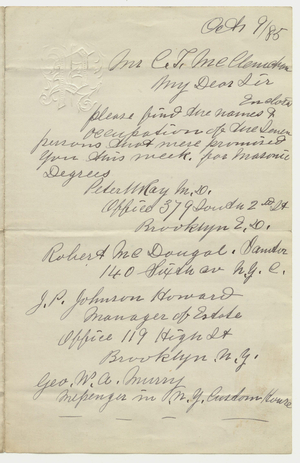 Oct 9/85
Mr. C. T. McClenachan
My Dear Sir
Enclosed
please find the names &
occupation of the Seven
persons that were promised
you this week. for Masonic
Degrees
Peter W Ray M.D.
Office 379 South 2nd St
Brooklyn E.D.
Robert McDougal. Janitor
140 Sixth av N.Y.C.
J. P. Johnson Howard
Manager of Estate
Office 119 High St
Brooklyn N.Y.
Geo. W. A. Murry
Messenger in N.Y. Custom House